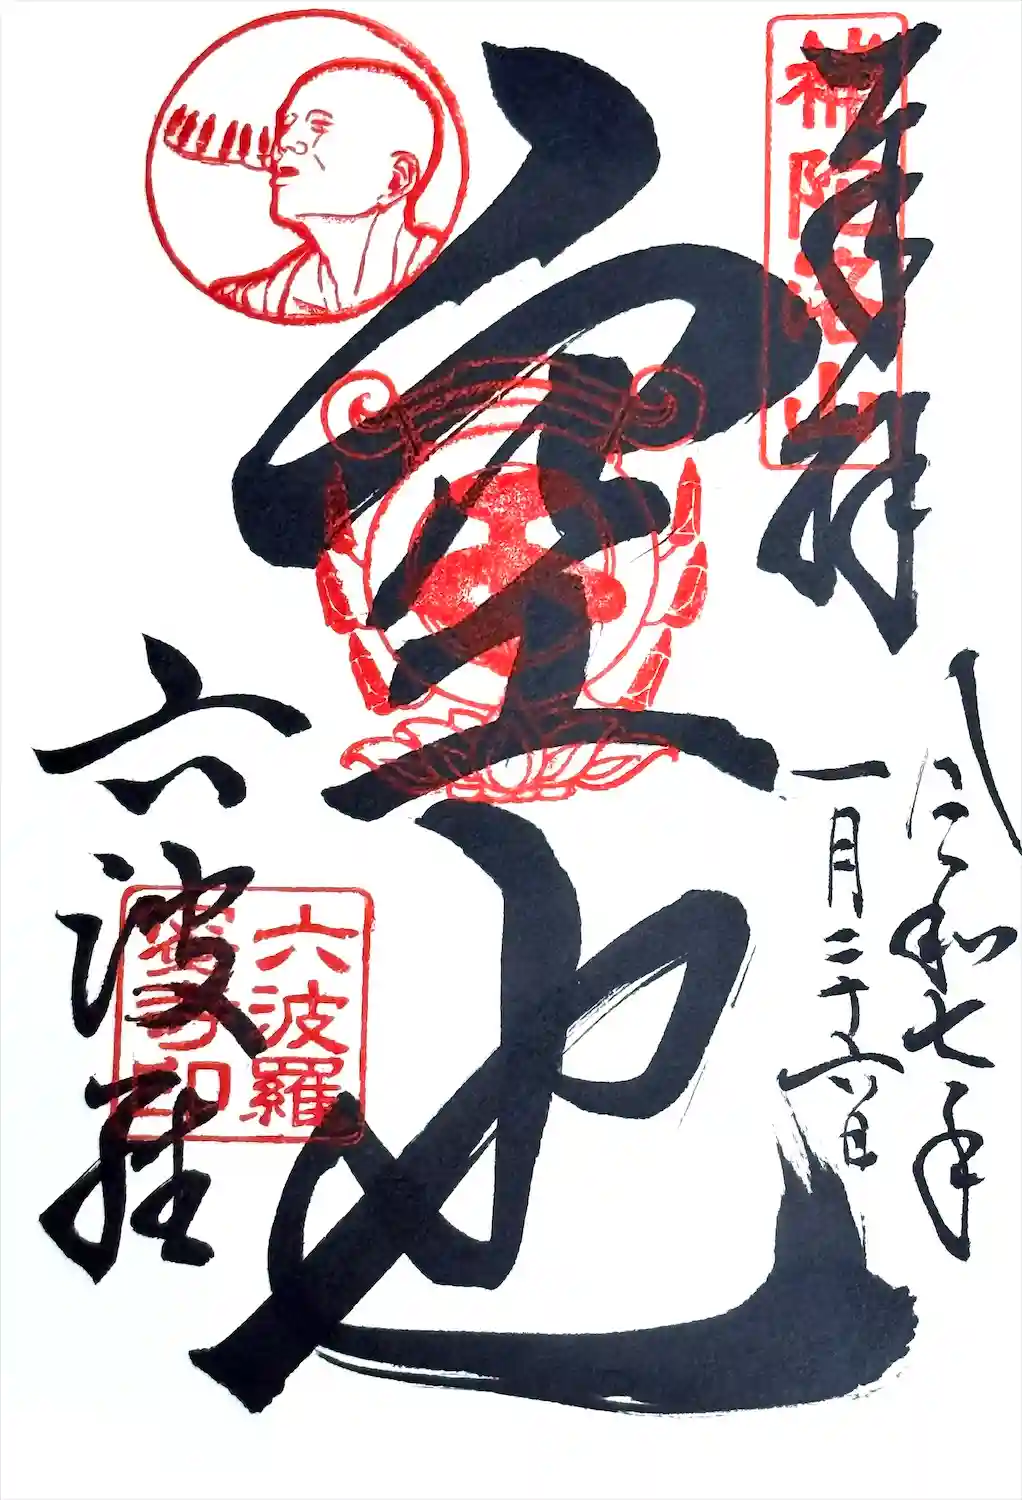 奉拝
補陀洛山
令和七年
一月二十六日
空也
六波羅
六波羅
蜜寺印